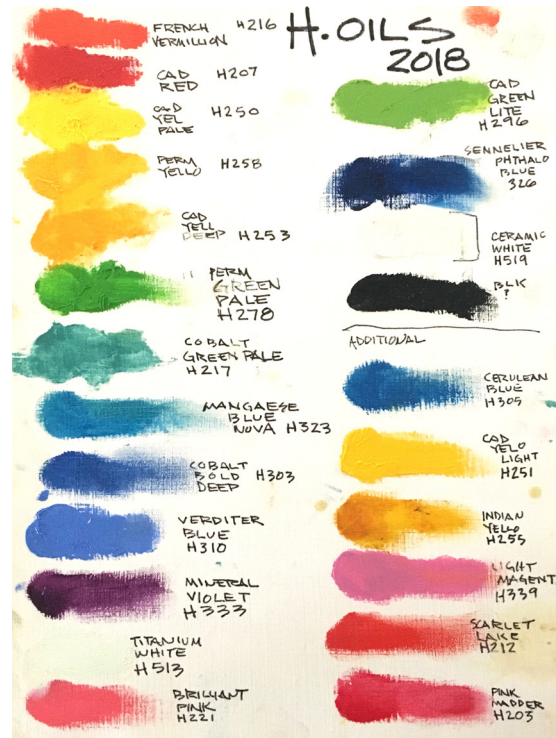 H. OILS
2018
FRENCH H216
VERMILLION
CAD H207
RED
CAD H250
YEL
PALE
PERM H258
YELLO
CAD
YELL
DEEP H253
PERM
GREEN
PALE
H278
COBALT
GREEN PALE
H217
MANGAESE
BLUE
NOVA H323
COBALT H303
BOLD
DEEP
VERDITER
BLUE
H310
MINERAL
VIOLET
H333
TITANIUM
WHITE
H513
BRILLYANT
PINK
H221
CAD
GREEN
LITE
H296
SENNELIER
PHTHALO
BLUE
326
CERAMIC
WHITE
H519
BLK
?
ADDITIONAL
CERULEAN
BLUE
H305
CAD
YELO
LIGHT
H251
INDIAN
YELLO
H255
LIGHT
MAGENT
H339
SCARLET
LAKE
H212
PINK
MADDER
H203